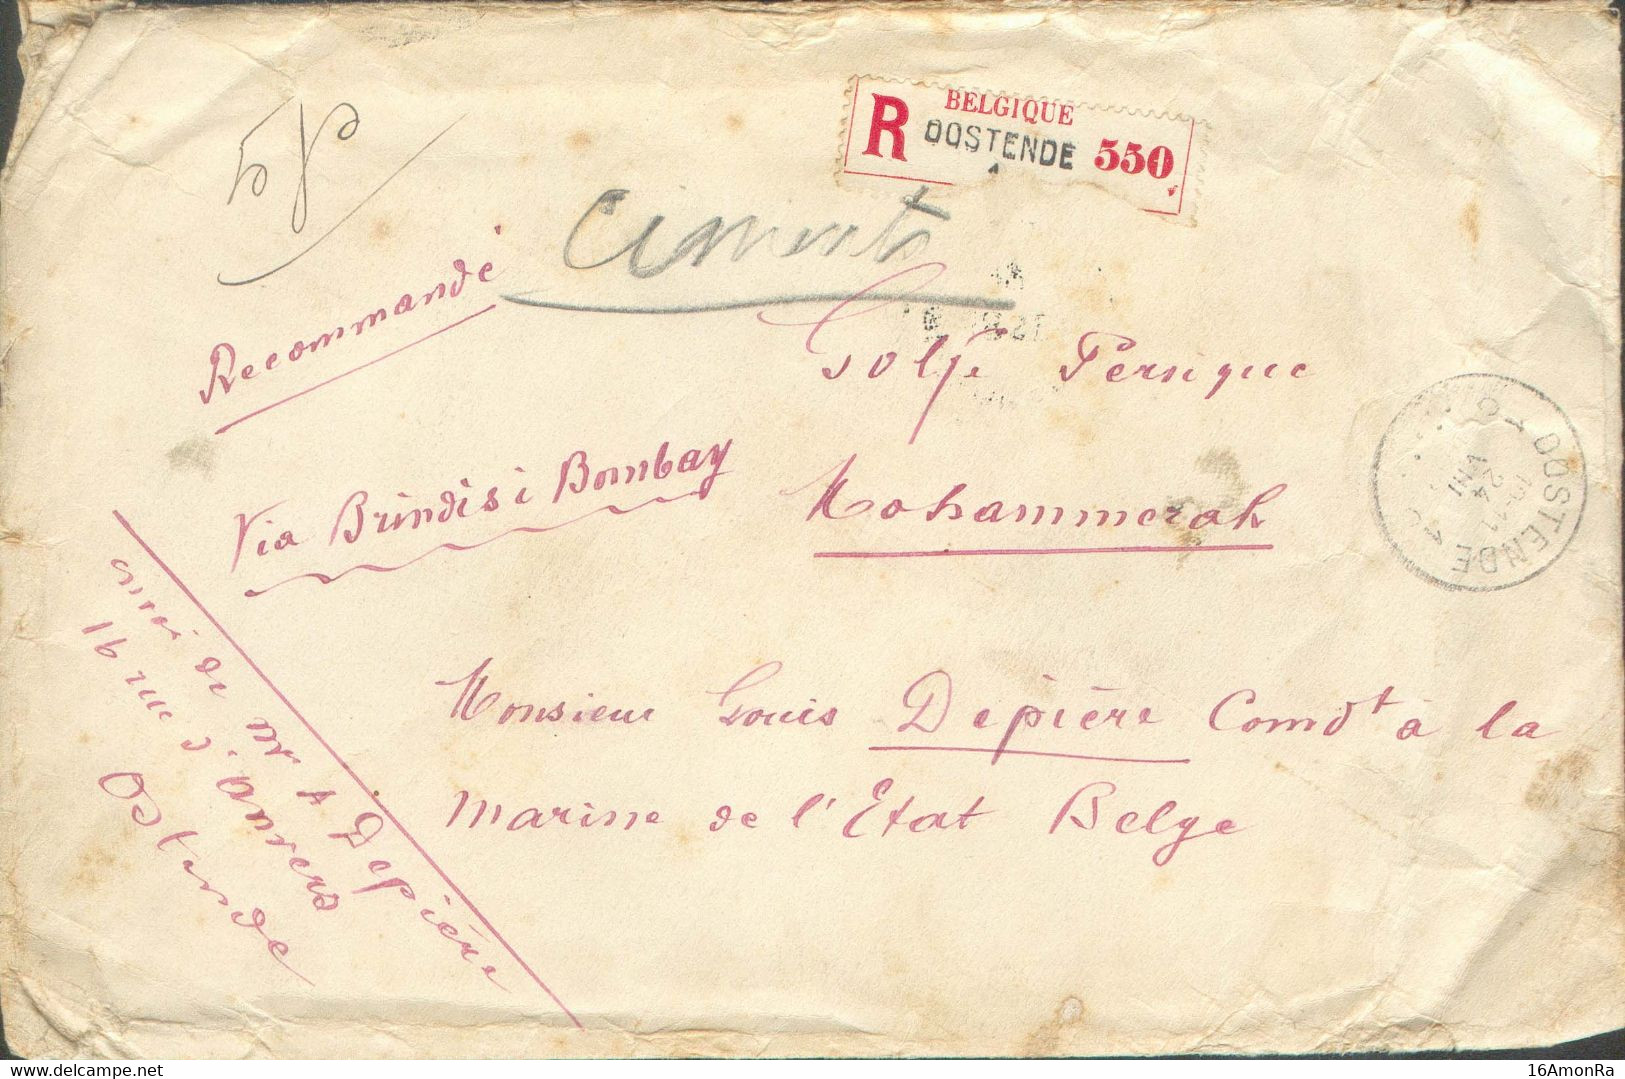 R BELGIQUE
OOSTENDE 550
Ciments
Recommandé
Golfe Persique
Via Brindisi Bombay
Mohammerah
OOSTENDE
10-11
24
VIII
Monsieur Louis Depière Comdt à la
marine de l'Etat Belge
envoi de Mr A Depière
16 rue d'Anvers
Ostende
www.delcampe.net
16AmonRa